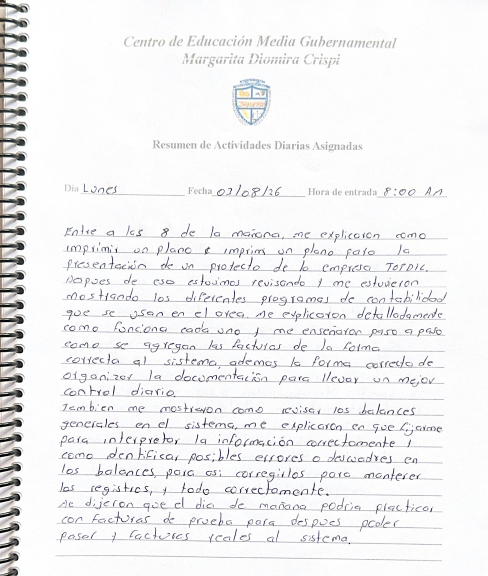 Centro de Educación Media Gubernamental
Margarita Diomira Crispi
Resumen de Actividades Diarias Asignadas
Día Lunes Fecha 03/08/26 Hora de entrada 8:00 AM
Entre a las 8 de la mañana, me explicaron como
imprimir un plano e imprimi un plano para la
presentación de un protecto de la empresa
Despues de eso estuvimos revisando y me estuvieron
mostrando los diferentes programas de contabilidad
que se usan en el area. Me explicaron detalladamente
como funciona cada uno y me enseñaron paso a paso
como se agregan las facturas de la forma
correcta al sistema, ademas la forma correcta de
organizar la documentación para llevar un mejor
control diario.
Tambien me mostraron como revisar los balances
generales en el sistema, me explicaron en que fijarme
para interpretar la información correctamente y
como identificar posibles errores o descuadres en
los balances, para asi corregirlos para mantener
los registros, y todo correctamente.
Me dijeron que el dia de mañana podria practicar
con facturas de prueba para despues poder
pasar y facturas reales al sistema.